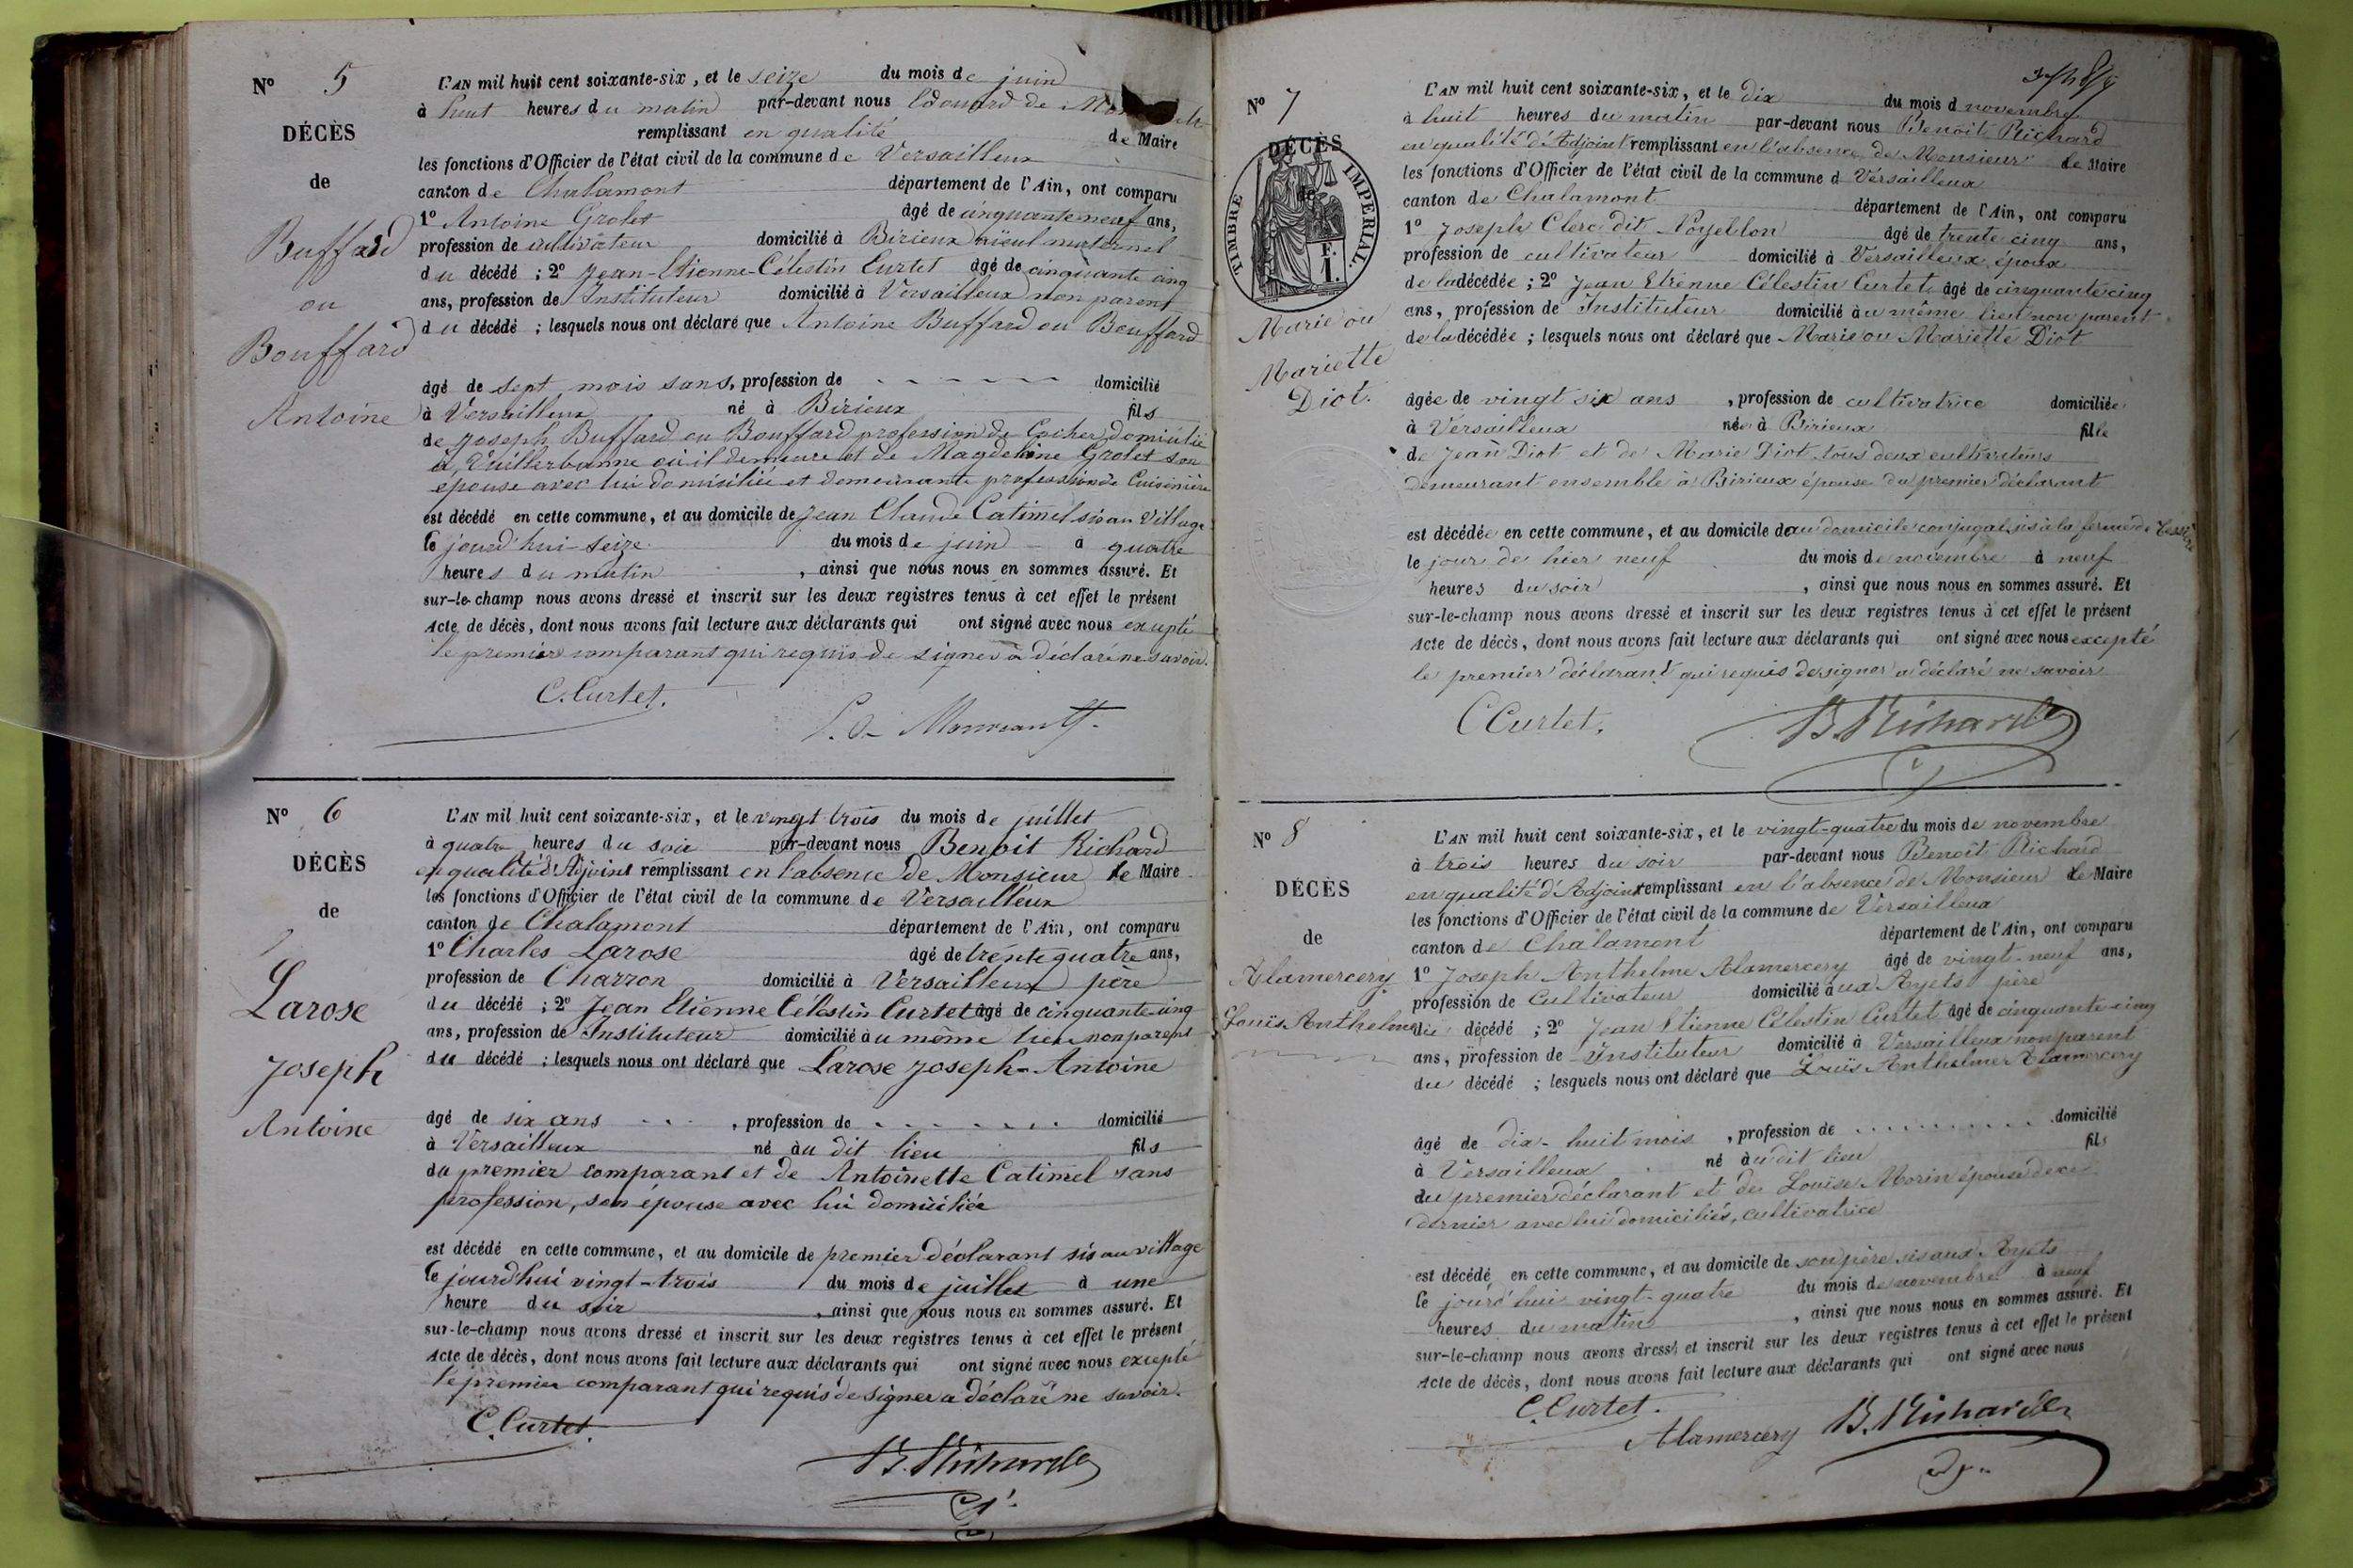 N° 5
DÉCÈS
de
Buffard
ou
Bouffard
Antoine
L'AN mil huit cent soixante-six, et le seize du mois de juin
à huit heures du matin par-devant nous Edouard de
remplissant en qualité de Maire
les fonctions d'Officier de l'état civil de la commune de Versailleux
canton de Chalamont département de l'Ain, ont comparu
1° Antoine Grolet âgé de cinquante neuf ans,
profession de cultivateur domicilié à Birieux aïeul maternel
du décédé ; 2° Jean-Etienne-Célestin Curtet âgé de cinquante cinq
ans, profession de Instituteur domicilié à Versailleux non parent
du décédé ; lesquels nous ont déclaré que Antoine Buffard ou Bouffard
âgé de sept mois sans, profession de - - - - - - domicilié
à Versailleux né à Birieux fils
de Joseph Buffard ou Bouffard profession de Cocher domicilié
à Vuillerbanne où il demeure et de Magdeleine Grolet son
épouse avec lui domiciliée et demeurante profession de Cuisinière
est décédé en cette commune, et au domicile de Jean Claude Catimel sis au Village
le jourd'hui seize du mois de juin à quatre
heures du matin , ainsi que nous nous en sommes assuré. Et
sur-le-champ nous avons dressé et inscrit sur les deux registres tenus à cet effet le présent
Acte de décès, dont nous avons fait lecture aux déclarants qui ont signé avec nous excepté
le premier comparant qui requis de signer a déclaré ne savoir.
C. Curtet.
N° 6
DÉCÈS
de
Larose
Joseph
Antoine
L'AN mil huit cent soixante-six, et le vingt trois du mois de juillet
à quatre heures du soir par-devant nous Benoit Richard
en qualité d'Adjoint remplissant en l'absence de Monsieur le Maire
les fonctions d'Officier de l'état civil de la commune de Versailleux
canton de Chalamont département de l'Ain, ont comparu
1° Charles Larose âgé de trente quatre ans,
profession de Charron domicilié à Versailleux père
du décédé ; 2° Jean Etienne Célestin Curtet âgé de cinquante-cinq
ans, profession de Instituteur domicilié au même lieu non parent
du décédé ; lesquels nous ont déclaré que Larose Joseph-Antoine
âgé de six ans - - - , profession de - - - - - - - domicilié
à Versailleux né au dit lieu fils
du premier comparant et de Antoinette Catimel sans
profession, son épouse avec lui domiciliée
est décédé en cette commune, et au domicile de premier déclarant sis au village
le jourd'hui vingt-trois du mois de juillet à une
heure du soir , ainsi que nous nous en sommes assuré. Et
sur-le-champ nous avons dressé et inscrit sur les deux registres tenus à cet effet le présent
Acte de décès, dont nous avons fait lecture aux déclarants qui ont signé avec nous excepté
le premier comparant qui requis de signer a déclaré ne savoir.
C. Curtet.
B. Richard
N° 7
DÉCÈS
de
TIMBRE IMPERIAL.
Marie ou
Mariette
Diot.
L'AN mil huit cent soixante-six, et le dix du mois d novembre
à huit heures du matin par-devant nous Benoit Richard
en qualité d'Adjoint remplissant en l'absence de Monsieur le Maire
les fonctions d'Officier de l'état civil de la commune d Versailleux
canton de Chalamont département de l'Ain, ont comparu
1° Joseph Clerc dit âgé de trente cinq ans,
profession de cultivateur domicilié à Versailleux époux
de la décédée ; 2° Jean Etienne Célestin Curtet âgé de cinquante cinq
ans, profession de Instituteur domicilié au même lieu non parent
de la décédée ; lesquels nous ont déclaré que Marie ou Mariette Diot
âgée de vingt six ans , profession de cultivatrice domiciliée
à Versailleux née à Birieux fille
de Jean Diot et de Marie Diot tous deux cultivateurs
demeurant ensemble à Birieux épouse du premier déclarant
est décédée en cette commune, et au domicile d au domicile conjugal sis à la ferme de
le jour de hier neuf du mois de novembre à neuf
heures du soir , ainsi que nous nous en sommes assuré. Et
sur-le-champ nous avons dressé et inscrit sur les deux registres tenus à cet effet le présent
Acte de décès, dont nous avons fait lecture aux déclarants qui ont signé avec nous excepté
le premier déclarant qui requis de signer a déclaré ne savoir
C Curtet.
B. Richard
N° 8
DÉCÈS
de
Alamercery
Louis Anthelme
L'AN mil huit cent soixante-six, et le vingt-quatre du mois de novembre
à trois heures du soir par-devant nous Benoit Richard
en qualité d'Adjoint remplissant en l'absence de Monsieur le Maire
les fonctions d'Officier de l'état civil de la commune de Versailleux
canton de Chalamont département de l'Ain, ont comparu
1° Joseph Anthelme Alamercery âgé de vingt-neuf ans,
profession de Cultivateur domicilié aux Ayets père
du décédé ; 2° Jean Etienne Célestin Curtet âgé de cinquante-cinq
ans, profession de Instituteur domicilié à Versailleux non parent
du décédé ; lesquels nous ont déclaré que Louis Anthelme Alamercery
âgé de dix-huit mois , profession de - - - - - - domicilié
à Versailleux né au dit lieu fils
du premier déclarant et de Louise Morin épouse de ce
dernier avec lui domiciliés, cultivatrice
est décédé en cette commune, et au domicile de son père sis aux Ayets
le jourd'hui vingt-quatre du mois de novembre à neuf
heures du matin , ainsi que nous nous en sommes assuré. Et
sur-le-champ nous avons dressé et inscrit sur les deux registres tenus à cet effet le présent
Acte de décès, dont nous avons fait lecture aux déclarants qui ont signé avec nous
C. Curtet.
Alamercery B. Richard